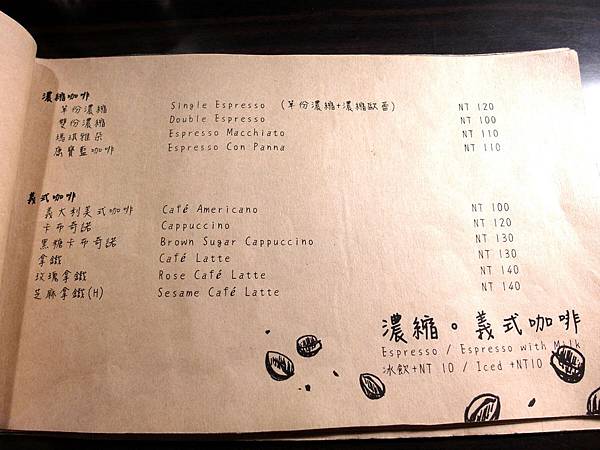 濃縮咖啡
單份濃縮 Single Espresso (單份濃縮+濃縮歐蕾) NT 120
雙份濃縮 Double Espresso NT 100
瑪琪雅朵 Espresso Macchiato NT 110
康寶藍咖啡 Espresso Con Panna NT 110
義式咖啡
義大利美式咖啡 Café Americano NT 100
卡布奇諾 Cappuccino NT 120
黑糖卡布奇諾 Brown Sugar Cappuccino NT 130
拿鐵 Café Latte NT 130
玫瑰拿鐵 Rose Café Latte NT 140
芝麻拿鐵(H) Sesame Café Latte NT 140
濃縮。義式咖啡
Espresso / Espresso with Milk
冰飲+NT 10 / Iced +NT10